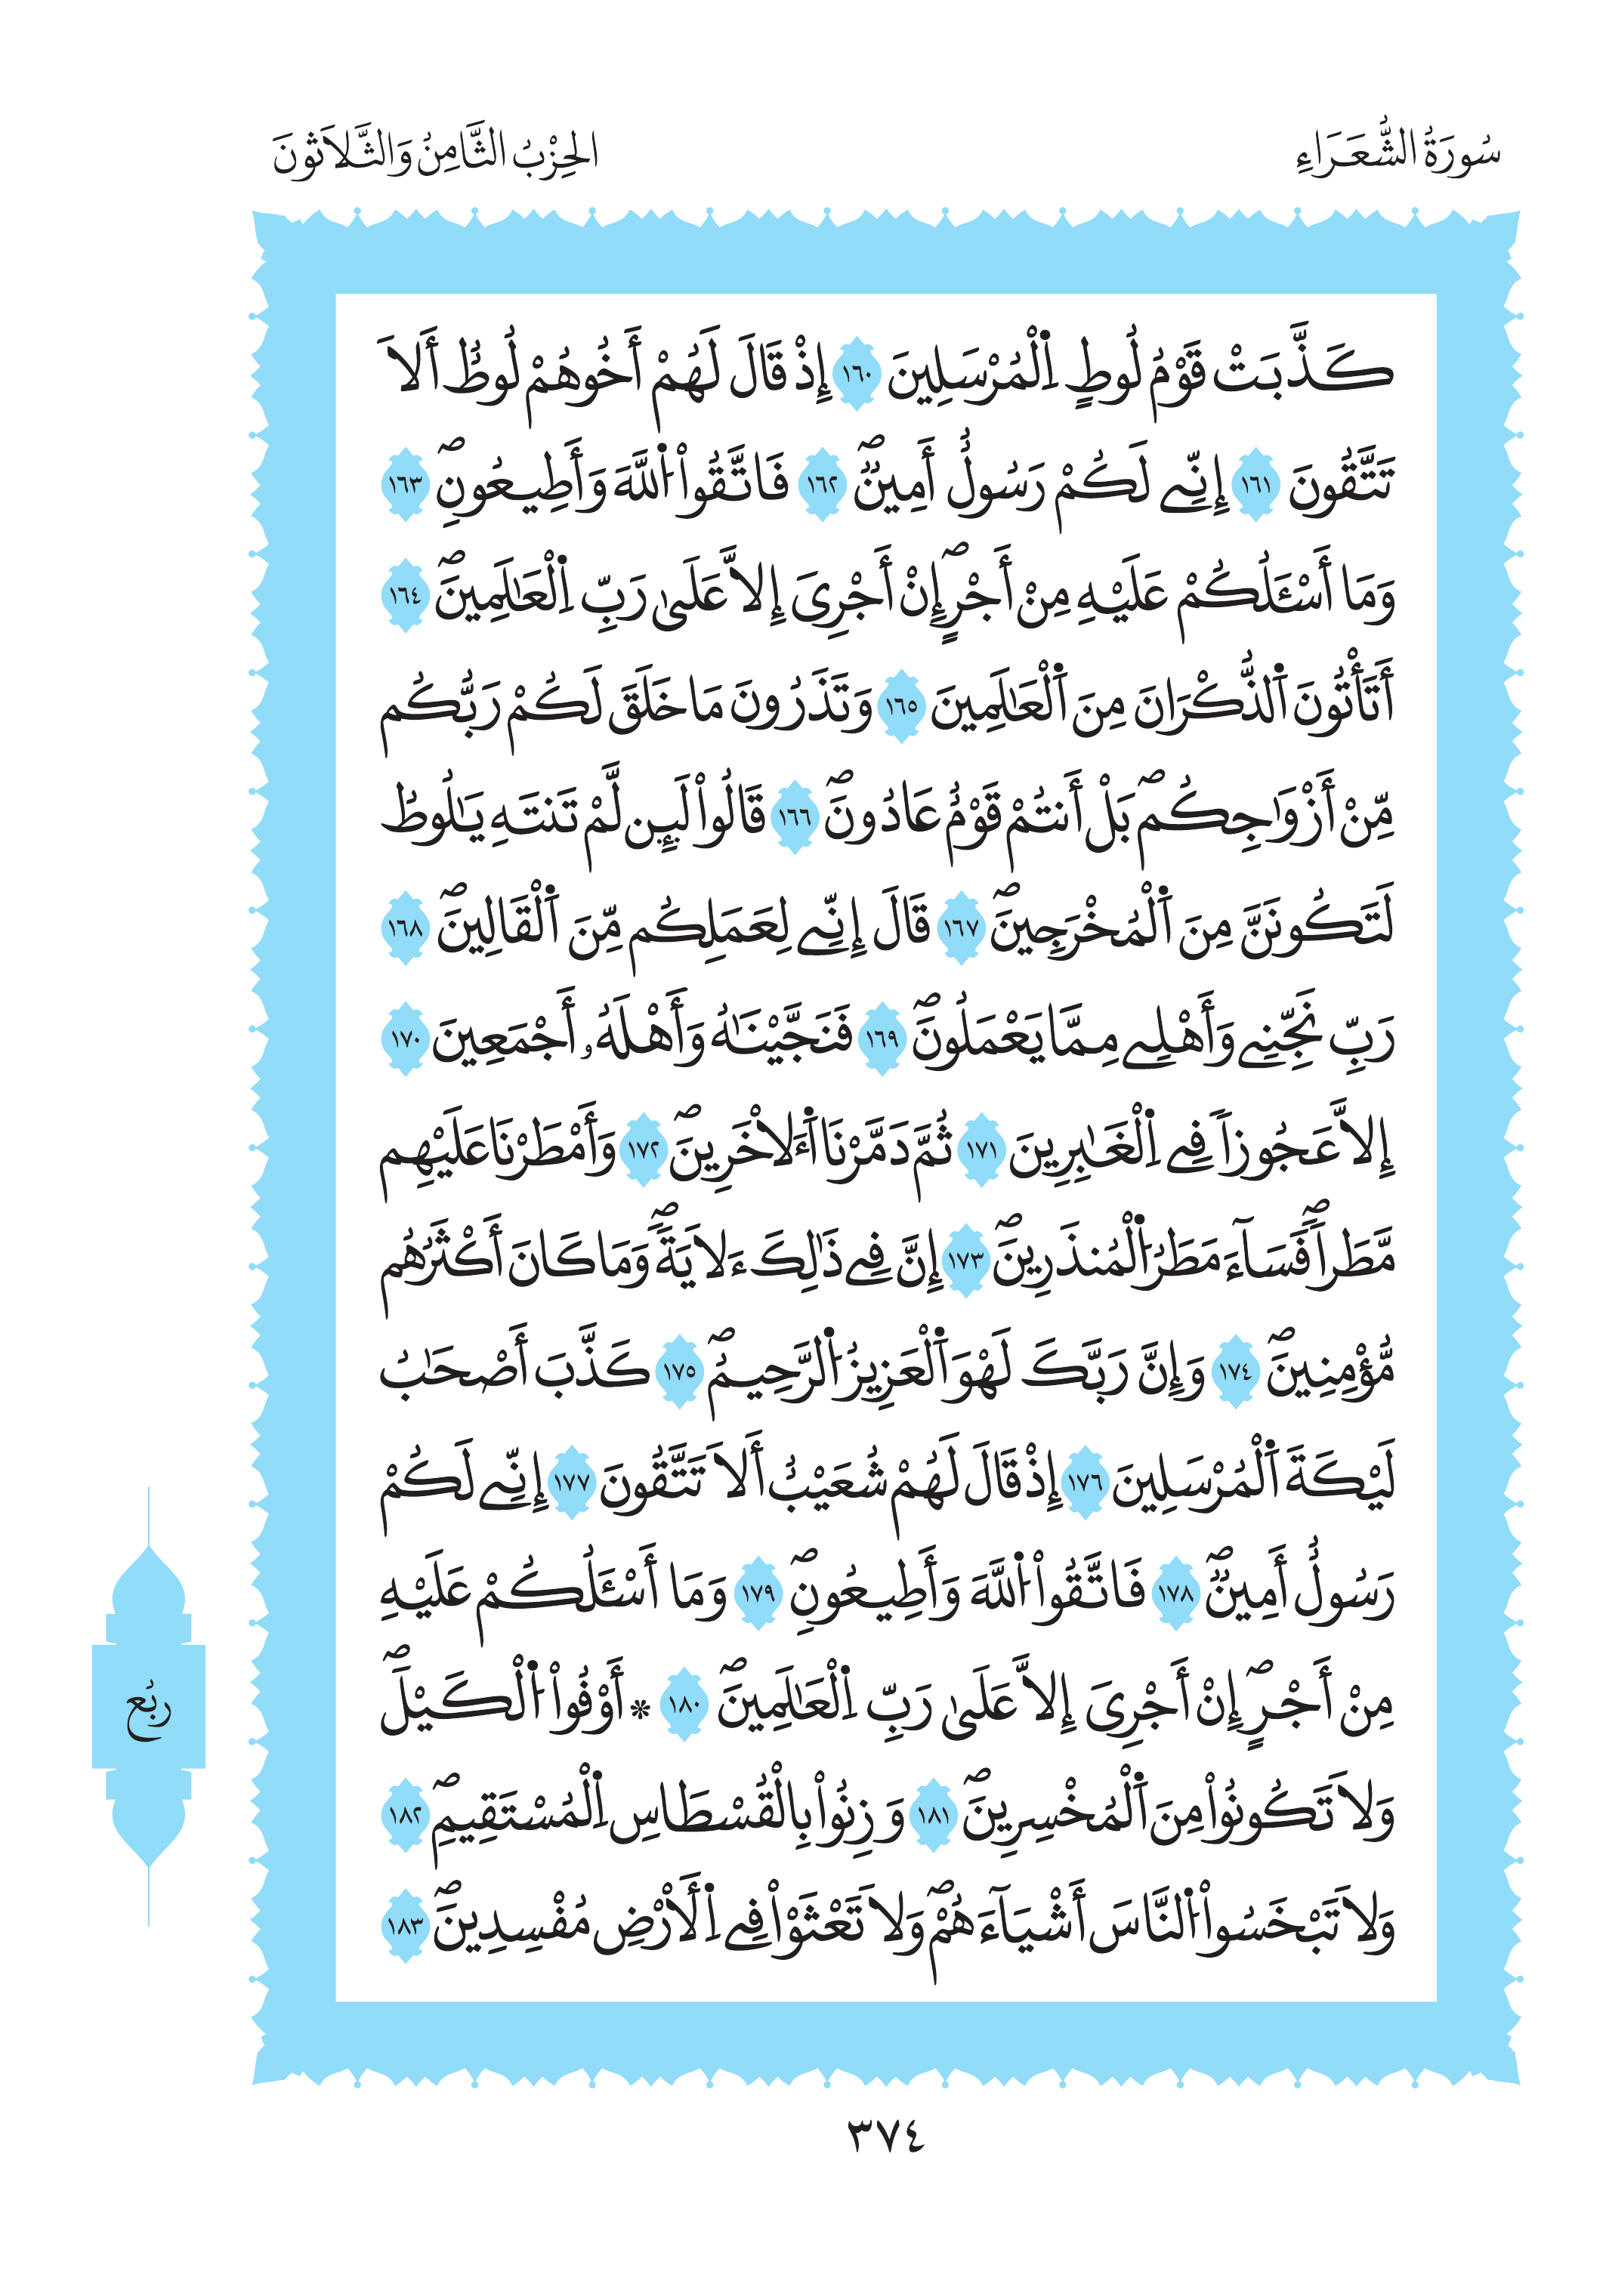 سُورَةُ الشُّعَرَاءِ
الحِزْبُ الثَّامِنُ وَالثَّلاَثونَ
كَذَّبَتْ قَوْمُ لُوطٍ اِ۬لْمُرْسَلِينَ ١٦٠ إِذْ قَالَ لَهُمْ أَخُوهُمْ لُوطٌ أَلاَ
تَتَّقُونَ ١٦١ إِنِّے لَكُمْ رَسُولٌ أَمِينٌۖ ١٦٢ فَاتَّقُوا۟ اُ۬للَّهَ وَأَطِيعُونِۖ ١٦٣
وَمَا أَسْـَٔلُكُمْ عَلَيْهِ مِنْ أَجْرٍۖ إِنْ أَجْرِىَ إِلاَّ عَلَىٰ رَبِّ اِ۬لْعَٰلَمِينَۖ ١٦٤
أَتَأْتُونَ اَ۬لذُّكْرَانَ مِنَ اَ۬لْعَٰلَمِينَ ١٦٥ وَتَذَرُونَ مَا خَلَقَ لَكُمْ رَبُّكُم
مِّنْ أَزْوَٰجِكُمۖ بَلْ أَنتُمْ قَوْمٌ عَادُونَۖ ١٦٦ قَالُوا۟ لَئِن لَّمْ تَنتَهِ يَٰلُوطُ
لَتَكُونَنَّ مِنَ اَ۬لْمُخْرَجِينَۖ ١٦٧ قَالَ إِنِّے لِعَمَلِكُم مِّنَ اَ۬لْقَالِينَۖ ١٦٨
رَبِّ نَجِّنِے وَأَهْلِے مِمَّا يَعْمَلُونَۖ ١٦٩ فَنَجَّيْنَٰهُ وَأَهْلَهُۥ أَجْمَعِينَ ١٧٠
إِلاَّ عَجُوزاً فِے اِ۬لْغَٰبِرِينَ ١٧١ ثُمَّ دَمَّرْنَا اَ۬لَاخَرِينَۖ ١٧٢ وَأَمْطَرْنَا عَلَيْهِم
مَّطَراًۖ فَسَآءَ مَطَرُ اُ۬لْمُنذَرِينَۖ ١٧٣ إِنَّ فِے ذَٰلِكَ ءَلَايَةًۖ وَمَا كَانَ أَكْثَرُهُم
مُّؤْمِنِينَۖ ١٧٤ وَإِنَّ رَبَّكَ لَهْوَ اَ۬لْعَزِيزُ اُ۬لرَّحِيمُۖ ١٧٥ كَذَّبَ أَصْحَٰبُ
لَيْكَةَ اَ۬لْمُرْسَلِينَ ١٧٦ إِذْ قَالَ لَهُمْ شُعَيْبٌ أَلاَ تَتَّقُونَ ١٧٧ إِنِّے لَكُمْ
رَسُولٌ أَمِينٌۖ ١٧٨ فَاتَّقُوا۟ اُ۬للَّهَ وَأَطِيعُونِۖ ١٧٩ وَمَا أَسْـَٔلُكُمْ عَلَيْهِ
مِنْ أَجْرٍۖ إِنْ أَجْرِىَ إِلاَّ عَلَىٰ رَبِّ اِ۬لْعَٰلَمِينَۖ ١٨٠ * أَوْفُوا۟ اُ۬لْكَيْلَۖ
وَلاَ تَكُونُوا۟ مِنَ اَ۬لْمُخْسِرِينَۖ ١٨١ وَزِنُوا۟ بِالْقُسْطَاسِ اِ۬لْمُسْتَقِيمِۖ ١٨٢
وَلاَ تَبْخَسُوا۟ اُ۬لنَّاسَ أَشْيَآءَهُمْۖ وَلاَ تَعْثَوْا۟ فِے اِ۬لْأَرْضِ مُفْسِدِينَۖ ١٨٣
ربُع
٣٧٤